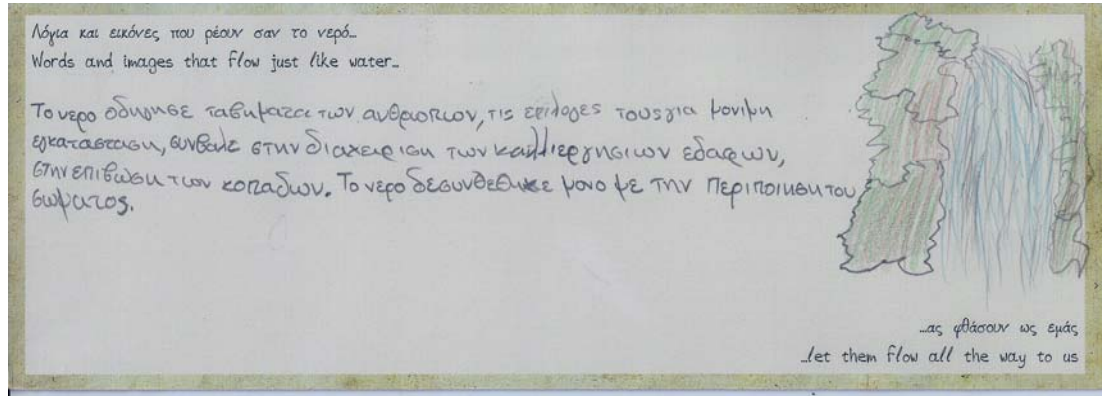 Λόγια και εικόνες που ρέουν σαν το νερό...
Words and images that flow just like water...
Το νερο οδηγησε τα βηματα των ανθρωπων, τις επιλογες τους για μονιμη
εγκατασταση, συνβαλε στην διαχειριση των καλλιεργησιων εδαφων,
στην επιβωση των κοπαδων. Το νερο δε συνθεθηκε μονο με την περιποιηση του
σωματος.
...ας φθάσουν ως εμάς
...let them flow all the way to us